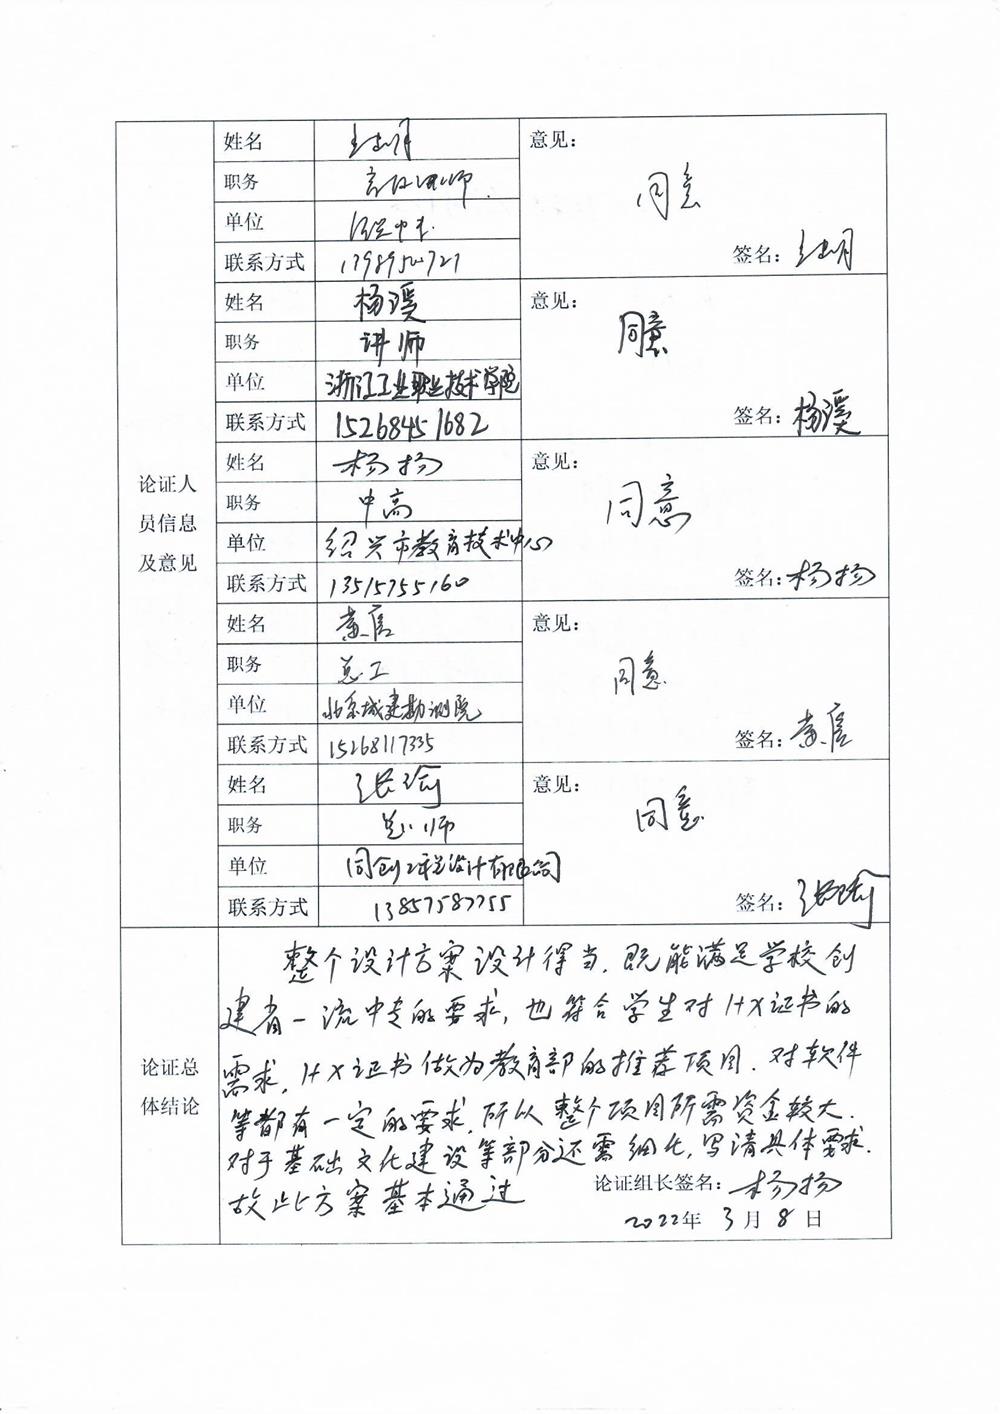 姓名
意见：
职务
同意
单位
签名：
联系方式
姓名 杨溪
意见：
职务 讲师
同意
单位 浙江工业职业技术学院
签名：杨溪
联系方式 15268451682
姓名 杨扬
意见：
职务 中高
同意
单位 绍兴市教育技术中心
签名：杨扬
联系方式 13515755160
论证人
员信息
及意见
姓名 黄信
意见：
职务 总工
同意
单位 北京城建勘测院
签名：黄信
联系方式 15268117335
姓名 张瑜
意见：
职务
同意
单位 同创工程设计有限公司
签名：张瑜
联系方式 13857587755
论证总
体结论
整个设计方案设计得当，既能满足学校创
建省一流中专的要求，也符合学生对1+X证书的
需求，1+X证书做为教育部的推荐项目，对软件
等都有一定的要求，所以整个项目所需资金较大。
对于基础文化建设等部分还需细化，写清具体需求.
故此方案基本通过
论证组长签名：杨扬
2022年3月8日